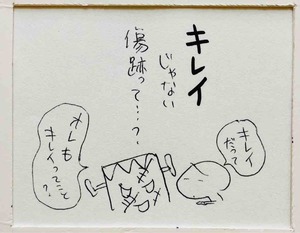 キレイ
じゃない
傷跡って…?
キレイ
だって
オレも
キレイってこと
?